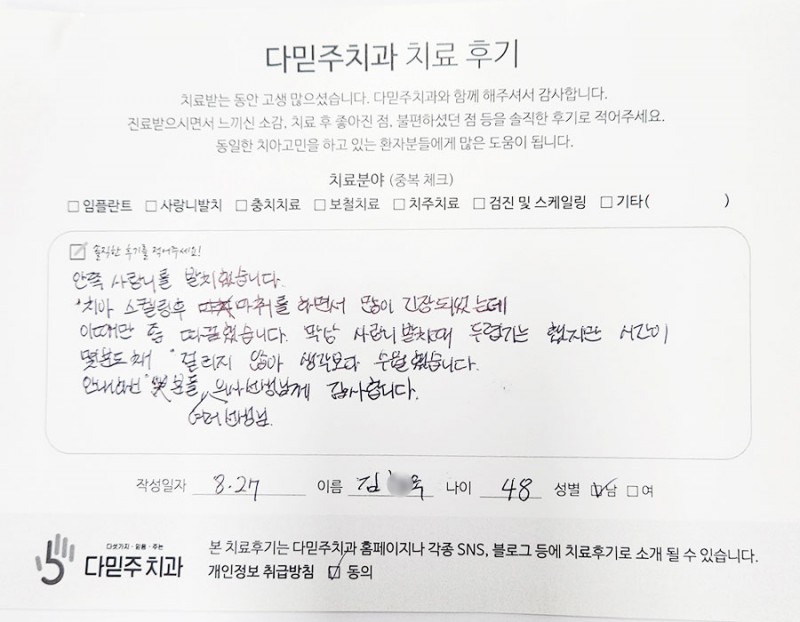 다믿주치과 치료 후기
치료받는 동안 고생 많으셨습니다. 다믿주치과와 함께 해주셔서 감사합니다.
진료받으시면서 느끼신 소감, 치료 후 좋아진 점, 불편하셨던 점 등을 솔직한 후기로 적어주세요.
동일한 치아고민을 하고 있는 환자분들에게 많은 도움이 됩니다.
치료분야 (중복 체크)
□ 임플란트 □ 사랑니발치 □ 충치치료 □ 보철치료 □ 치주치료 □ 검진 및 스케일링 □ 기타( )
솔직한 후기를 적어주세요!
안쪽 사랑니를 발치했습니다.
치아 스켈링후 마취를 하면서 많이 긴장되었는데
이때만 좀 따끔했습니다. 막상 사랑니 발치때 두렵기는 했지만 시간이
몇분도 채 걸리지 않아 생각보다 수월했습니다.
분들, 의사선생님께 감사합니다.
선생님.
작성일자 8.27 이름 김 옥 나이 48 성별 ☑남 □여
다섯가지·믿음·주는
다믿주치과
본 치료후기는 다믿주치과 홈페이지나 각종 SNS, 블로그 등에 치료후기로 소개 될 수 있습니다.
개인정보 취급방침 ☑ 동의